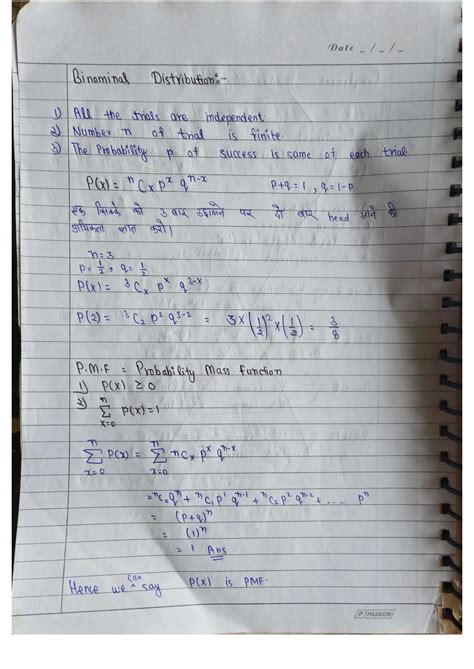 Date _/_/_
Binominal Distribution:-
1) All the trials are independent.
2) Number n of trial is finite.
3) The Probability p of success is same of each trial.
P(x) = ⁿCₓ pˣ qⁿ⁻ˣ p+q=1, q=1-p
एक सिक्के को 3 बार उछालने पर दो बार head आने की
प्रायिकता ज्ञात करो।
n=3
p=1/2, q=1/2
P(x) = ³Cₓ pˣ q³⁻ˣ
P(2) = ³C₂ p² q³⁻² = 3×(1/2)²×(1/2) = 3/8
P.M.F = Probability Mass Function
1) P(x) ≥ 0
2) ∑ₓ₌₀ⁿ P(x)=1
∑ₓ₌₀ⁿ P(x) = ∑ₓ₌₀ⁿ ⁿCₓ pˣ qⁿ⁻ˣ
= ⁿC₀qⁿ + ⁿC₁ p¹ qⁿ⁻¹ + ⁿC₂ p² qⁿ⁻² + ..... pⁿ
= (p+q)ⁿ
= (1)ⁿ
= 1 Ans
Hence we can say P(x) is PMF.
P PASSION